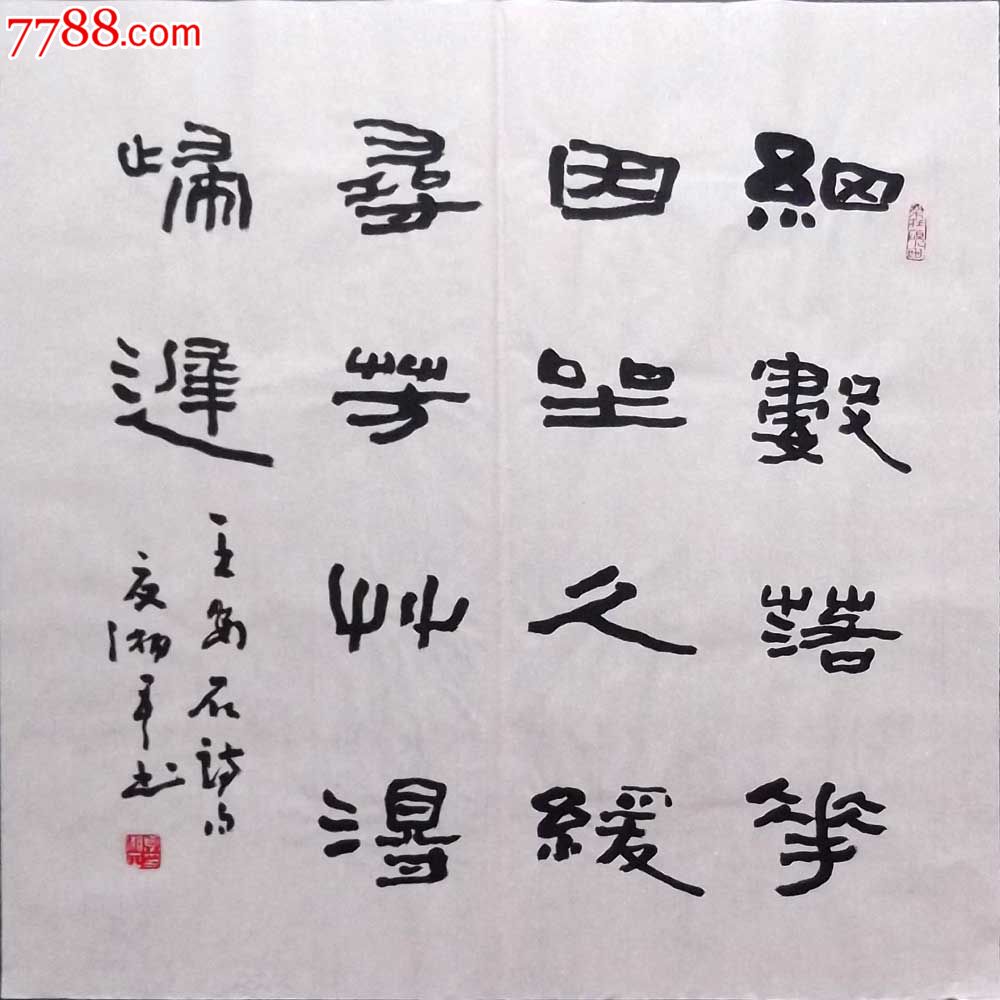 7788.com
細數落華
因坐久緩
尋芳艸淂
歸遲
王安石詩句
夏湘平书